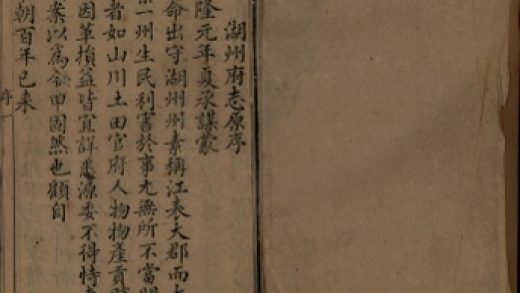 湖州府志原序
隆元年夏承謀蒙
命出守湖州州素稱江表大郡而
一州生民利害於事尤無所不當
者如山川土田官府人物物產貢
因革損益皆宜詳悉源委不得恃
案以爲甲固然也顧自
朝百年已來
序一